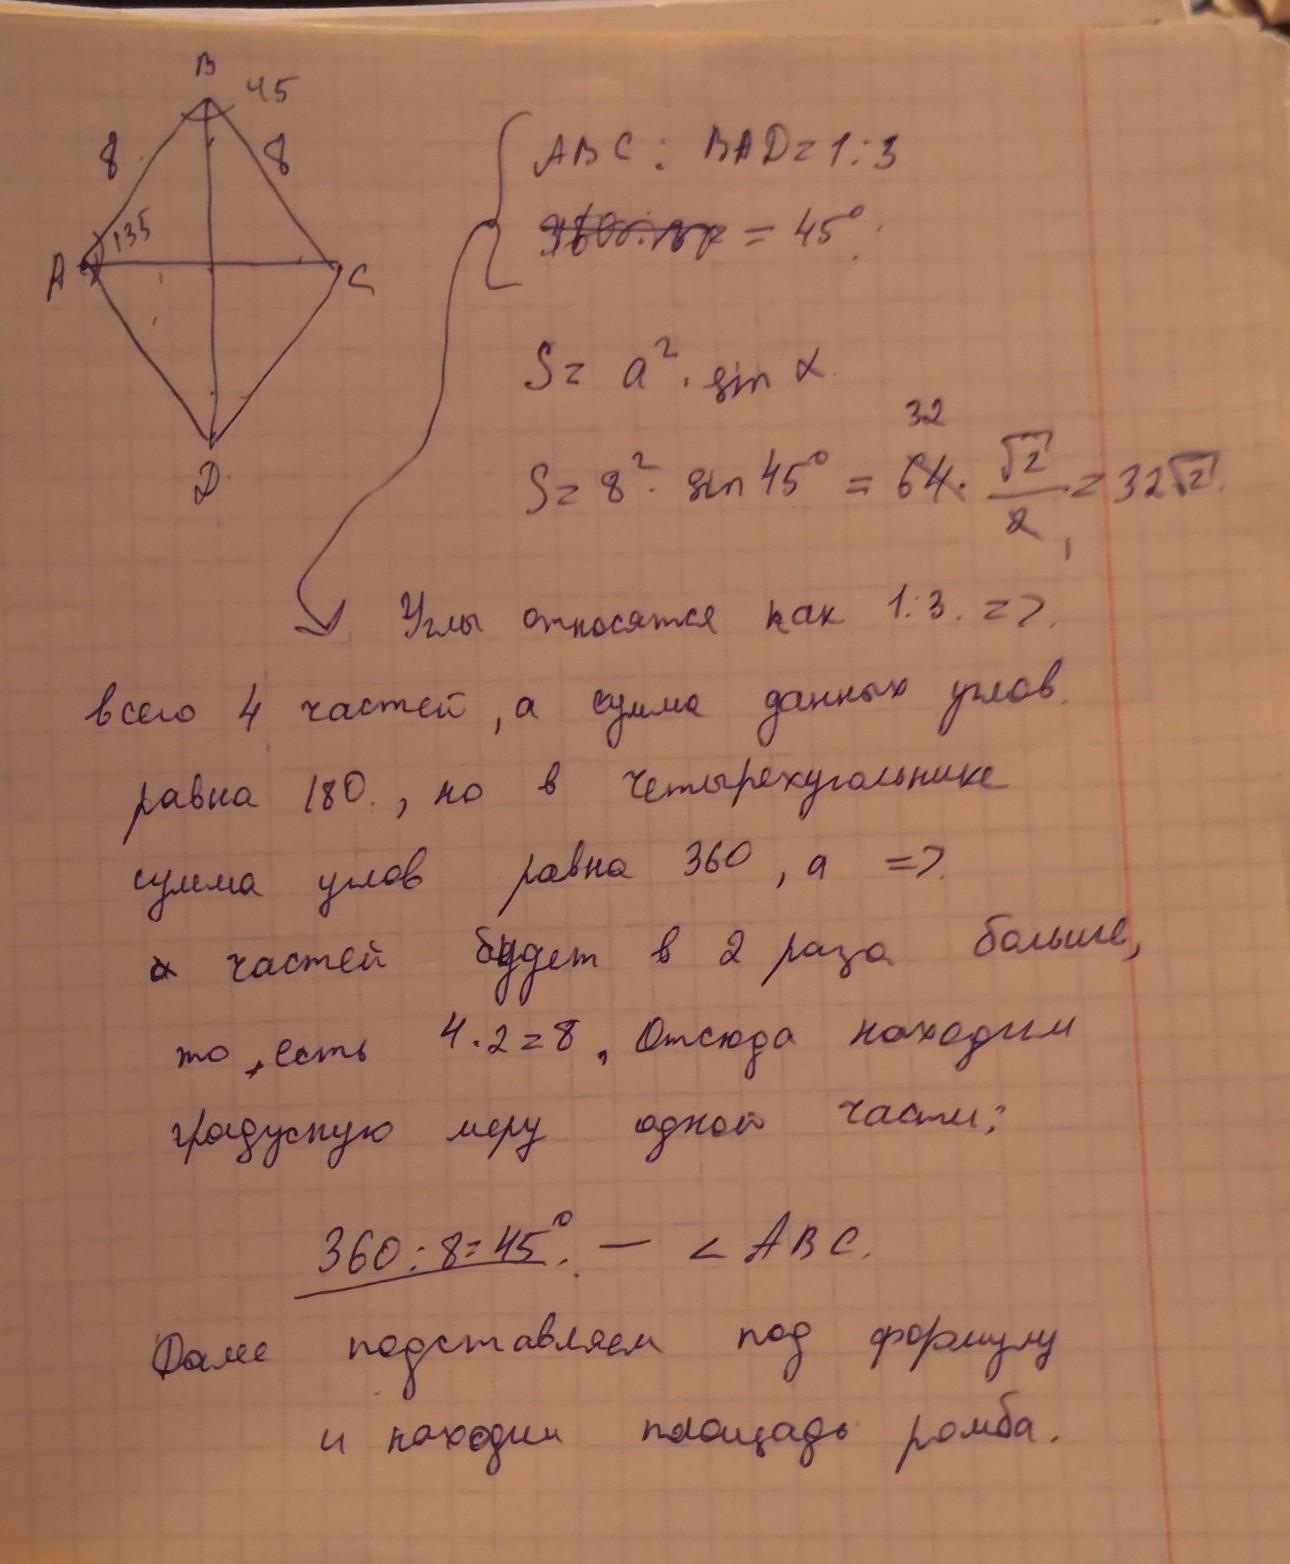 B
45
8
8
135
A
C
D
ABC : BAD = 1:3
= 45°.
S = a² · sin α.
32
S = 8² · sin 45° = 64 · √2/2 = 32√2.
1
Углы относятся как 1:3. =>.
всего 4 частей, а сумма данных углов.
равна 180., но в четырехугольнике
сумма углов равна 360, а =>.
частей будет в 2 раза больше,
то, есть 4·2=8, Отсюда находим
градусную меру одной части:
360:8=45°. — <ABC.
Далее подставляем под формулу
и находим площадь ромба.